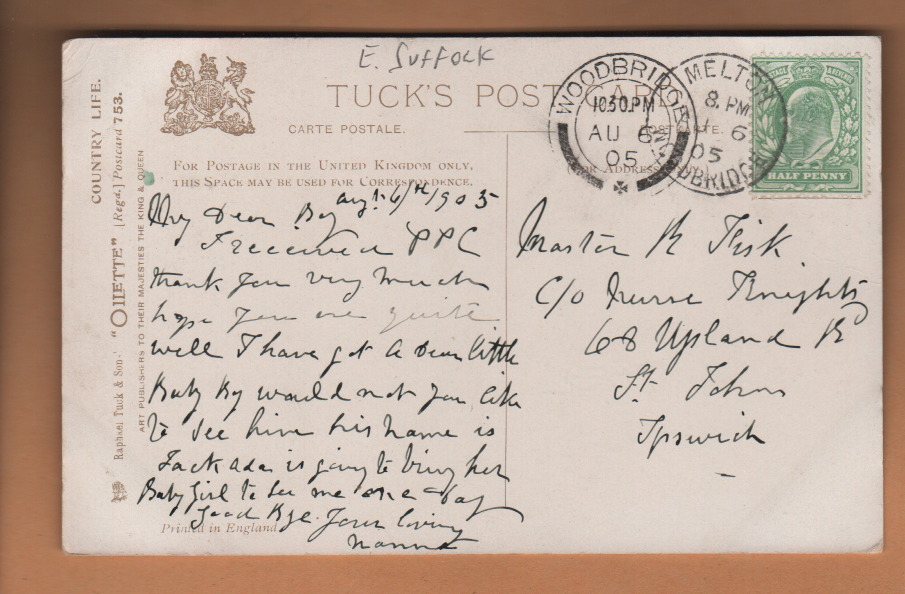 E. SUFFOLK
TUCK'S POST CARD
CARTE POSTALE.
FOR POSTAGE IN THE UNITED KINGDOM ONLY,
THIS SPACE MAY BE USED FOR CORRESPONDENCE.
(FOR ADDRESS
WOODBRIDGE
10.30.PM
AU 6
05
MELTON
8. PM
6
05
WOODBRIDGE
POSTAGE & REVENUE
HALF PENNY
COUNTRY LIFE.
"OILETTE" [Regd.] Postcard 753.
Raphael Tuck & Sons'
ART PUBLISHERS TO THEIR MAJESTIES THE KING & QUEEN
Augst 6th/1905
My Dear Boy
I received PPC
thank you very much
hope you are quite
well I have got a Dear little
Baby Boy would not you like
to see him his name is
Jack Ada is going to bring her
Baby Girl to see me one day
Good Bye. Your loving
Nanna
Printed in England
Master R Fisk
C/o Nurse Knights
68 Upland Rd
St Johns
Ipswich